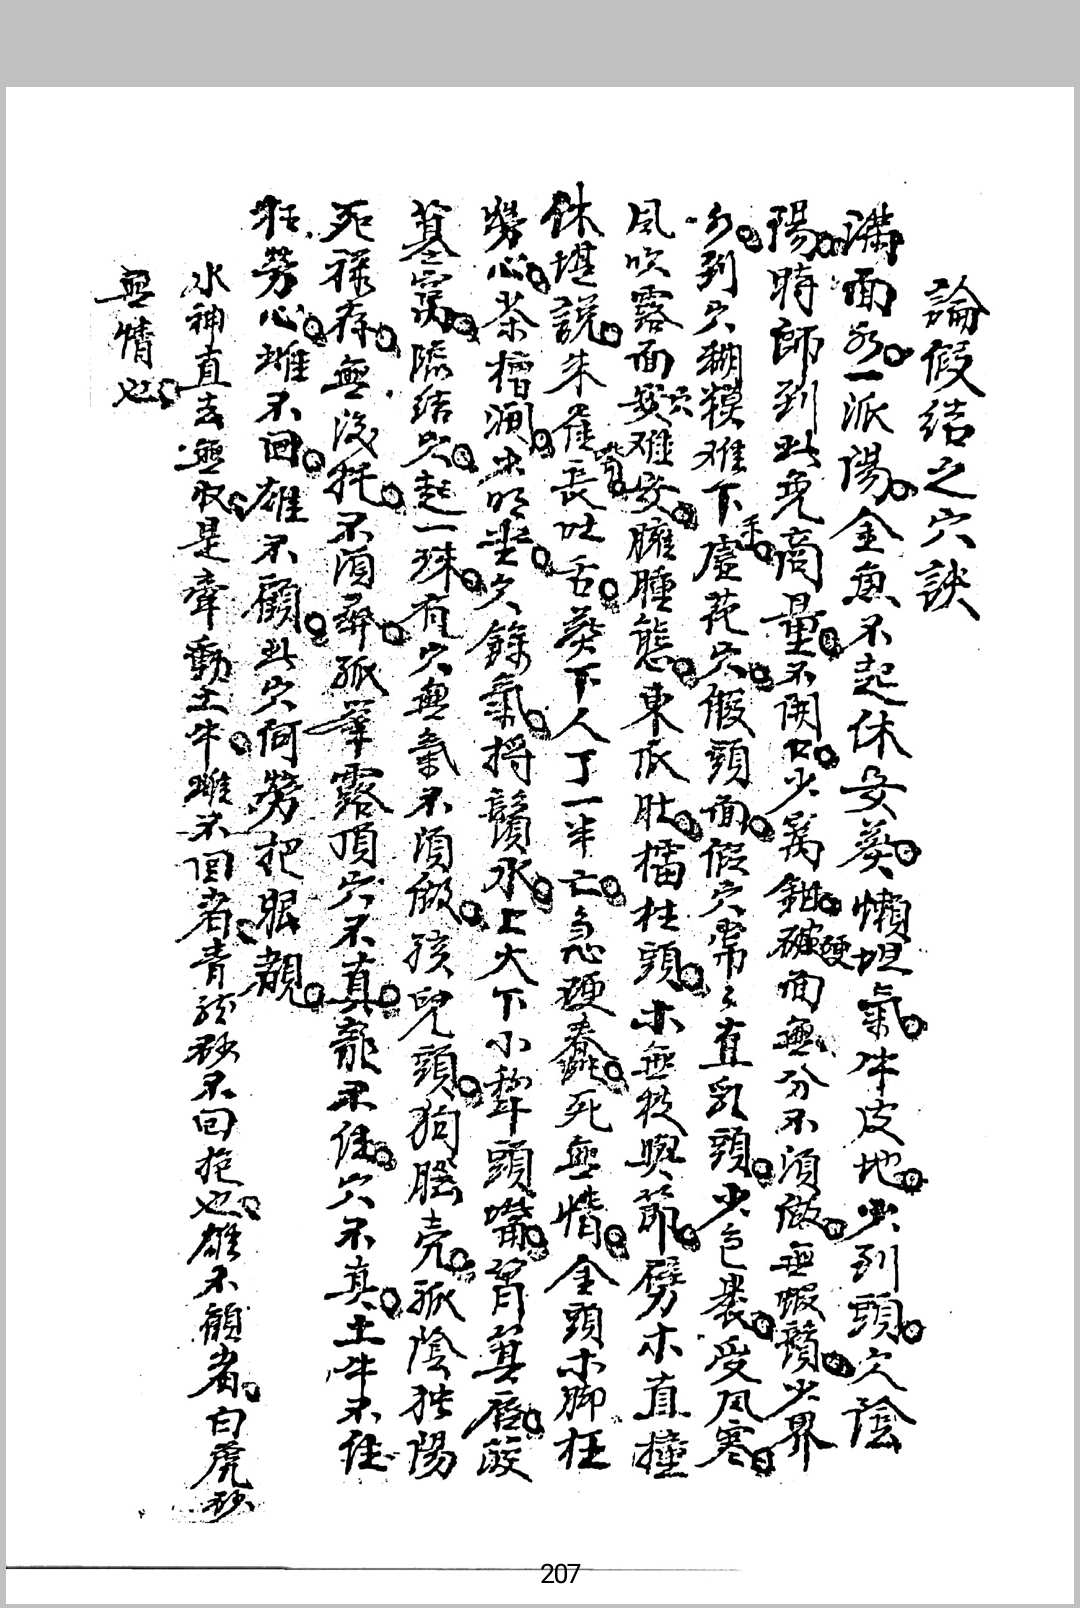 論假結之穴訣
滿面水一派陽。金魚不起休安葬。懶坦氣。牛皮地。少到頭。穴陰
陽。時師到此免商量。不開口。少葛鉗。硬面無分不須做。無蝦鬚。少界
水。到穴糊模难下手。虛花穴。假頭面。假穴常々直乳頭。少包裹。受风寒。
风吹露面穴难安。臃腫態。東瓜肚。擂柱頭。木無枝與節。劈木直撞
休堪説。朱雀嘴長吐舌。葬下人丁一半亡。急硬麤。死無情。金頭木脚枉
勞心。茶槽澗。出唇坐穴餘氣。捋鬚水。上大下小犂頭嘴。箕唇
墓之窩。臨結穴。起一珠。有穴無氣不須做。孩兒頭。狗腦壳。孤陰独陽
死禄存。無後托。不須尋。孤峯露頂穴不真。龍不住。穴不真。土牛不住
枉勞心。雌不回。雄不顧。此穴何勞把眼覩。
水神直去無收是牽動土牛。雌不回者。青龍砂不回抱也。雄不顧者。白虎砂
無情也。